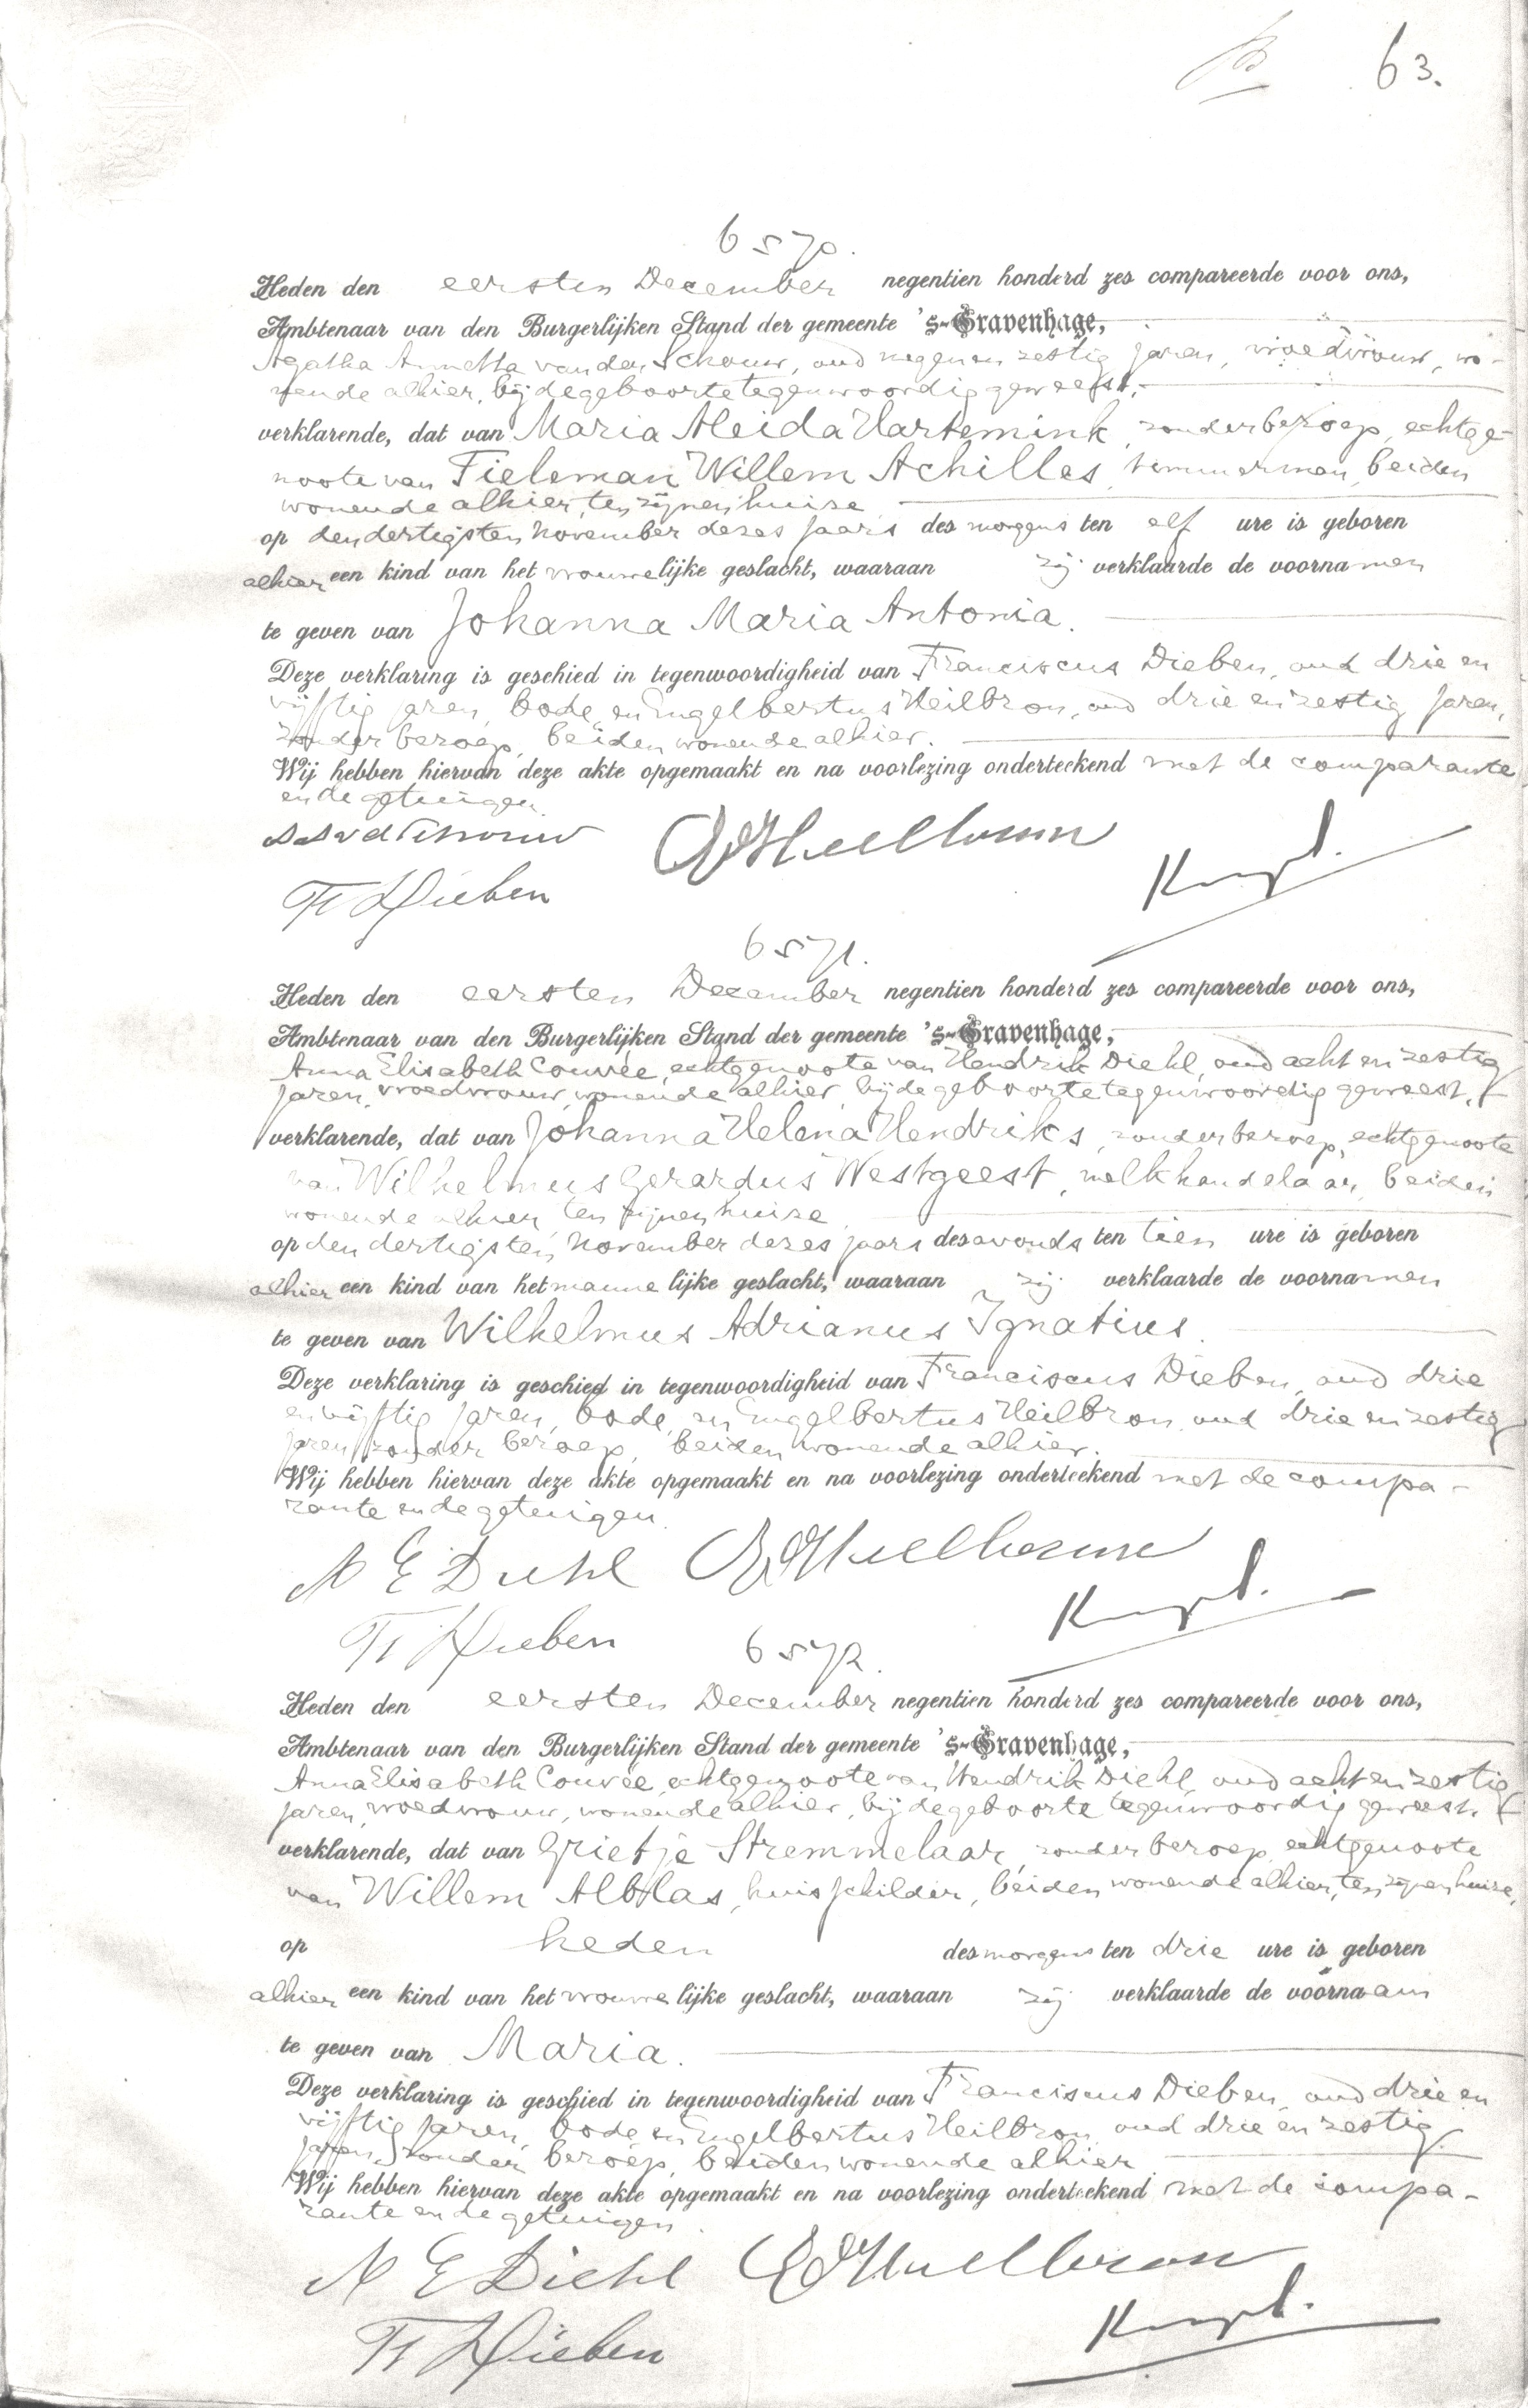 63.
6570.
Heden den eersten December negentien honderd zes compareerde voor ons,
Ambtenaar van den Burgerlijken Stand der gemeente 's-Gravenhage,
Agatha Annetta van der Schouw, oud negen en zestig jaren, vroedvrouw, wo-
nende alhier, bij de geboorte tegenwoordig geweest,
verklarende, dat van Maria Aleida Hartemink, zonder beroep, echtge-
noote van Tieleman Willem Achilles, timmerman, beiden
wonende alhier, ten zijnen huize,
op den dertigsten November dezes jaars des morgens ten elf ure is geboren
alhier een kind van het vrouwelijke geslacht, waaraan zij verklaarde de voornamen
te geven van Johanna Maria Antonia.
Deze verklaring is geschied in tegenwoordigheid van Franciscus Dieben, oud drie en
vijftig jaren, bode, en Engelbertus Heilbron, oud drie en zestig jaren,
zonder beroep, beiden wonende alhier.
Wij hebben hiervan deze akte opgemaakt en na voorlezing onderteekend met de comparante
en de getuigen.
A A v d Schouw E Heilbron
Fr Dieben
6571.
Heden den eersten December negentien honderd zes compareerde voor ons,
Ambtenaar van den Burgerlijken Stand der gemeente 's-Gravenhage,
Anna Elisabeth Couvée, echtgenoote van Hendrik Diehl, oud acht en zestig
jaren, vroedvrouw, wonende alhier, bij de geboorte tegenwoordig geweest,
verklarende, dat van Johanna Helena Hendriks, zonder beroep, echtgenoote
van Wilhelmus Gerardus Westgeest, melkhandelaar, beiden
wonende alhier, ten zijnen huize,
op den dertigsten November dezes jaars des avonds ten tien ure is geboren
alhier een kind van het mannelijke geslacht, waaraan zij verklaarde de voornamen
te geven van Wilhelmus Adrianus Ignatius.
Deze verklaring is geschied in tegenwoordigheid van Franciscus Dieben, oud drie
en vijftig jaren, bode, en Engelbertus Heilbron, oud drie en zestig
jaren, zonder beroep, beiden wonende alhier.
Wij hebben hiervan deze akte opgemaakt en na voorlezing onderteekend met de compa-
rante en de getuigen.
A E Diehl E Heilbron
Fr Dieben
6572.
Heden den eersten December negentien honderd zes compareerde voor ons,
Ambtenaar van den Burgerlijken Stand der gemeente 's-Gravenhage,
Anna Elisabeth Couvée, echtgenoote van Hendrik Diehl, oud acht en zestig
jaren, vroedvrouw, wonende alhier, bij de geboorte tegenwoordig geweest,
verklarende, dat van Grietje Stremmelaar, zonder beroep, echtgenoote
van Willem Alblas, huisschilder, beiden wonende alhier, ten zijnen huize,
op heden des morgens ten drie ure is geboren
alhier een kind van het vrouwelijke geslacht, waaraan zij verklaarde de voornaam
te geven van Maria.
Deze verklaring is geschied in tegenwoordigheid van Franciscus Dieben, oud drie en
vijftig jaren, bode en Engelbertus Heilbron, oud drie en zestig
jaren, zonder beroep, beiden wonende alhier
Wij hebben hiervan deze akte opgemaakt en na voorlezing onderteekend met de compa-
rante en de getuigen.
A E Diehl E Heilbron
Fr Dieben